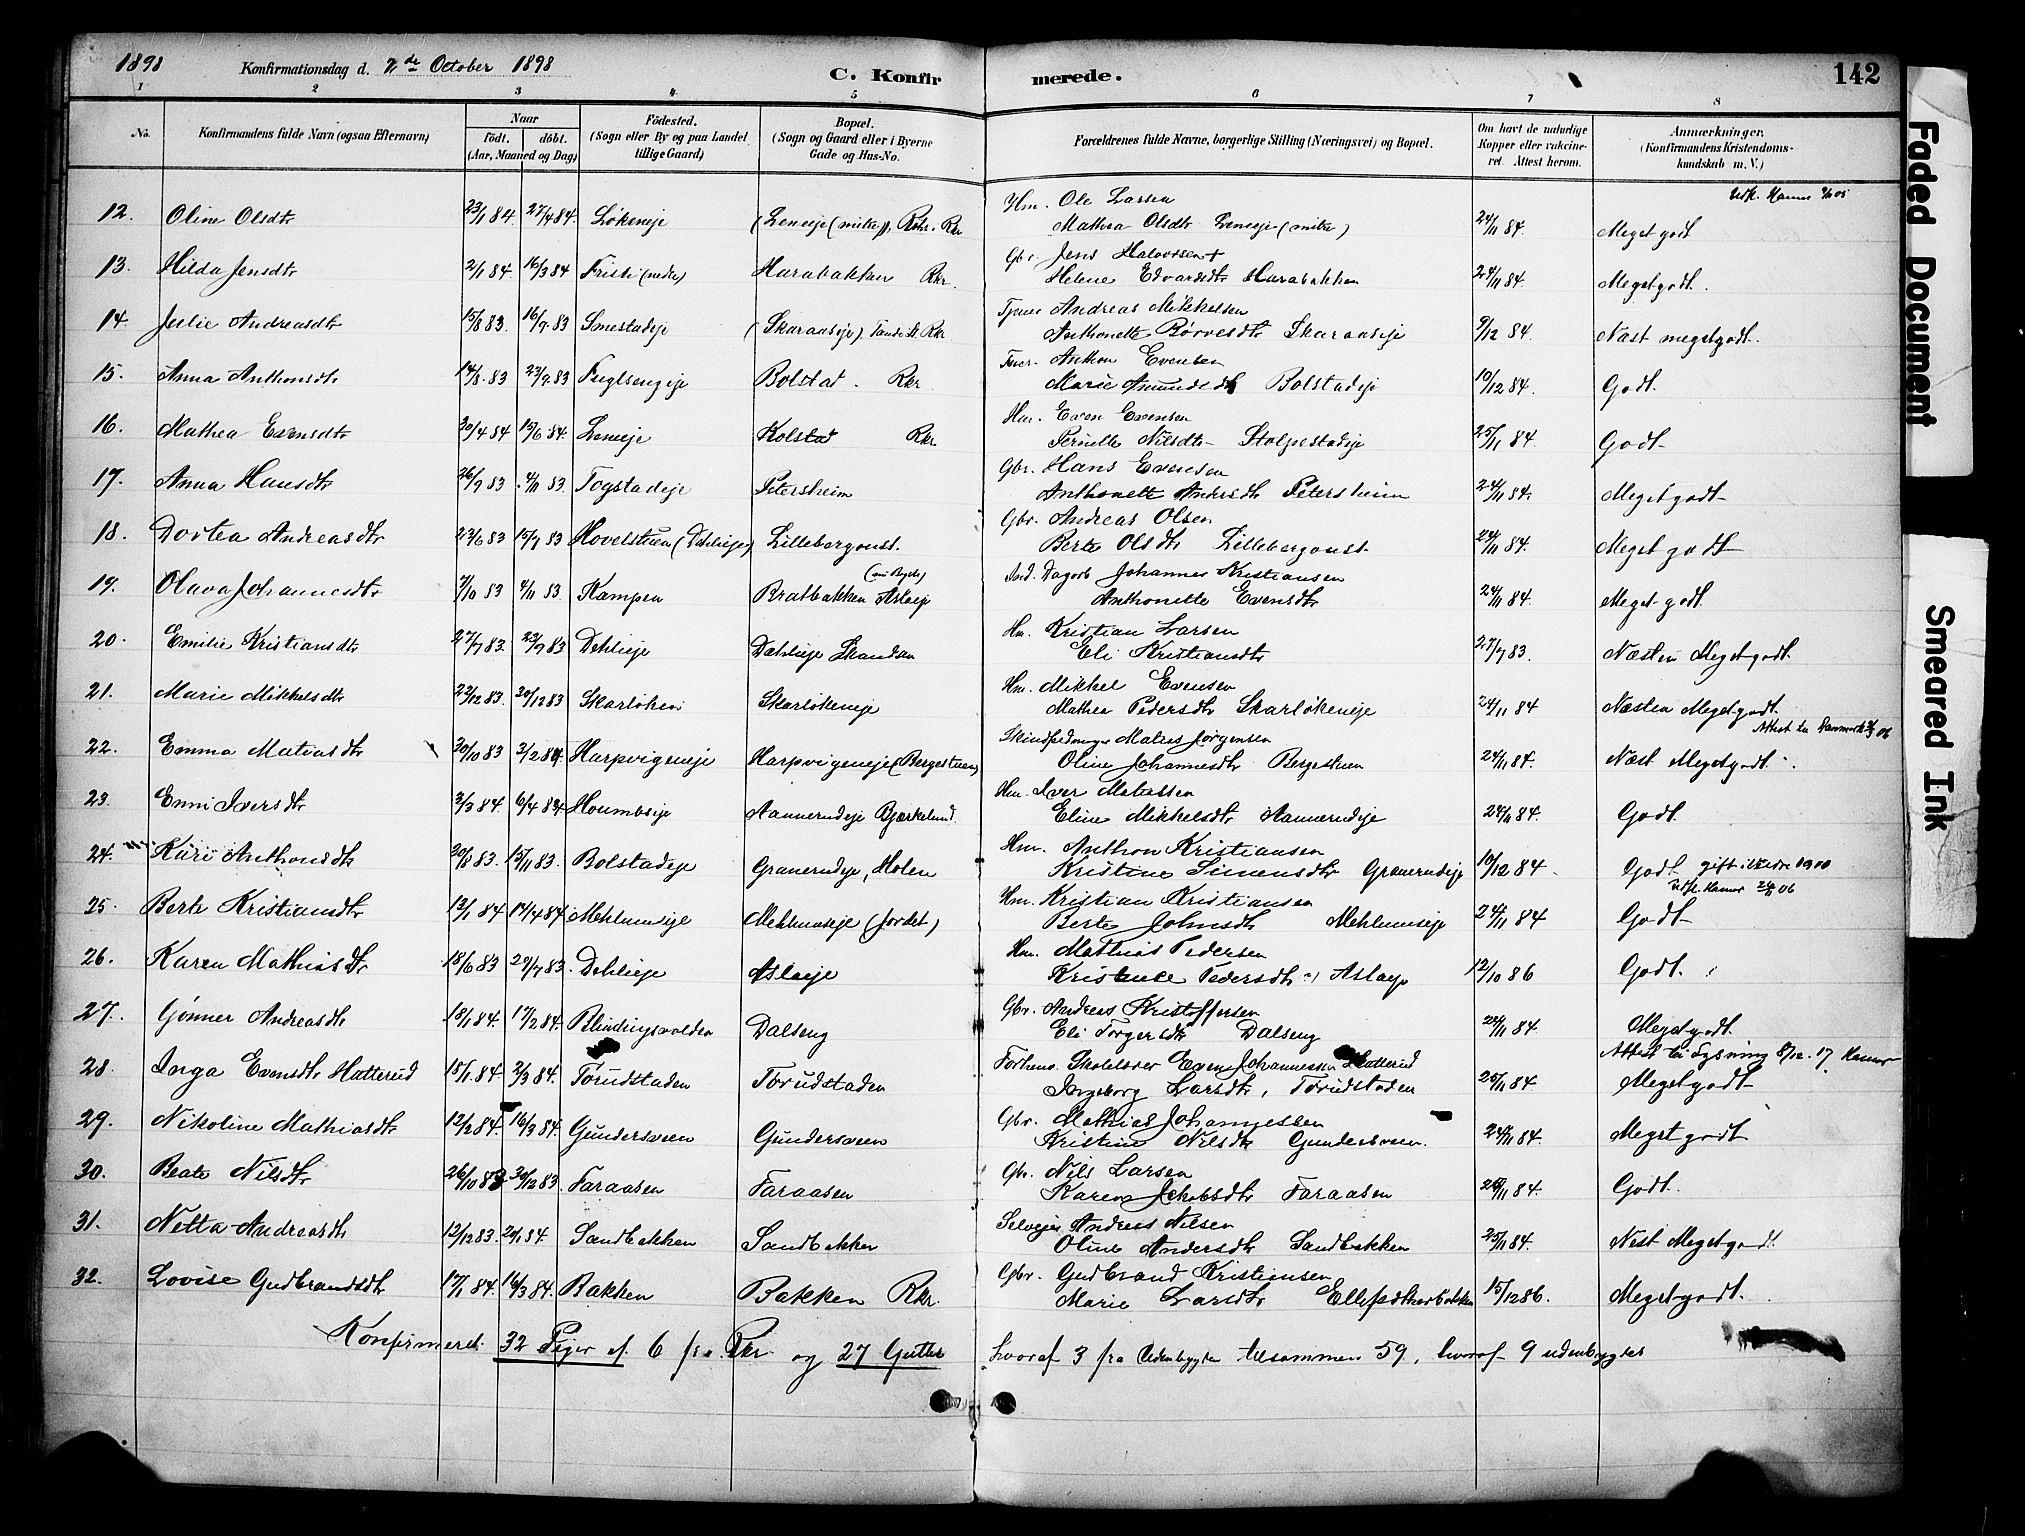 1898 Konfirmationsdag d. 2de October 1898 C. Konfirmerede. 142
1 2 3 4 5 6 7 8
No. Konfirmandens fulde Navn (ogsaa Efternavn) Naar födt. döbt. (Aar, Maaned og Dag) Födested. (Sogn eller By og paa Landet tillige Gaard) Bopæl. (Sogn og Gaard eller i Byerne Gade og Hus-No. Forældrenes fulde Navne, borgerlige Stilling (Næringsvei) og Bopæl. Om havt de naturlige Kopper eller vakcineret. Attest herom. Anmærkninger. (Konfirmandens Kristendomskundskab m. V.)
12. Oline Olsdtr 23/1 84 27/4 84 Løkeneje Hm. Ole Larsen
Mathea Olsdtr 24/11 84. Meget godt
13. Hilda Jensdtr 2/1 84. 16/3 84 Friste (nedre) Harabakken Rkr. Gbr. Jens Halvorsen +
Helene Edvardsdtr Harabakken 24/11 84. Meget godt.
14. Julie Andreasdtr 15/8 83. 16/9 83 Smestadeje (Skaraaseje) Rkr. Andreas Mikkelsen
Anthonette Skaraaseje 9/12 84. Næst meget godt.
15. Anna Anthonsdtr 14/8 83 23/9 83 Fuglsengeje Bolstad. Rkr. Anthon Evensen
Marie Amundsdtr Bolstadeje 10/12 84. Godt.
16. Mathea Evensdtr 30/4 84 15/6 84. Kolstad Rkr. Hm. Even Evensen
Pernille Nilsdtr Stolpestadeje 25/11 84 Godt
17. Anna Hansdtr 26/9 83 4/11 83. Togstadeje Petersheim Gbr. Hans Evensen
Anthonette Andersdtr Petersheim 24/11 84. Meget godt
18. Dortea Andreasdtr 23/6 83 15/7 83 Hovelstuen (Dehlieje) Lillebergonst. Gbr. Andreas Olsen
Berte Olsdtr Lillebergonst. 24/11 84. Meget godt
19. Olava Johannesdtr 7/10 83 4/11 83. Kampen Bratbakken Aslaeje Ind. Dagarb. Johannes Kristiansen
Anthonette Evensdtr 24/11 84. Meget godt.
20. Emilie Kristiansdtr 27/7 83. 23/9 83 Dehlieje Dæhlieje Hm. Kristian Larsen
Eli Kristiansdtr 27/7 83. Næsten Meget godt.
21. Marie Mikkelsdtr 23/12 83. 30/12 83 Skarløken Skarløkeneje Hm. Mikkel Evensen
Mathea Pedersdtr Skarløkeneje 24/11 84 Næsten Meget godt.
22. Emma Matiasdtr 30/10 83 3/2 84 Harpvigeneje Harpvigeneje (Bergestuen) Jørgensen
Oline Johannesdtr Bergestuen 24/11 84. Næst Meget godt.
23. Enni Iversdtr 3/3 84 6/4 84 Houmbseje Aannerudeje Bjørkelund Hm. Iver Matiassen
Eline Mikkelsdtr Aannerudeje 24/11 84. Godt.
24. Kari Anthonsdtr 30/8 83. 15/11 83. Bolstadeje Granerudeje, Molen Hm. Anthon Kristiansen
Kristine Simensdtr Granerudeje 10/12 84. Godt gift
25. Berte Kristiansdtr 13/1 84 14/4 84 Mehlumseje Mehlumseje (Jordet) Hm. Kristian Kristiansen
Berte Johnsdtr Mehlumseje 24/11 84 Godt
26. Karen Mathiasdtr 18/6 83 29/7 83. Dehlieje Aslaeje Hm. Mathias Pedersen
Pedersdtr Aslaeje 12/10 86 Godt.
27. Gønner Andreasdtr 18/1 84. 17/2 84. Blindingsvolden Dalseng Gbr. Andreas Kristoffersen
Eli Torgersdtr Dalseng 24/11 84. Meget godt.
Attest til Lysning 8/12. 17. Hamar
28. Inga Evensdtr Hatterud 18/1 84. 2/3 84. Torudstaden Torudstaden Forhens. Skolelærer Even Johannessen Hatterud
Ingeborg Larsdtr, Torudstaden 25/11 84. Meget godt
29. Nikoline Mathiasdtr 12/2 84. 16/3 84. Gundersveen Gundersveen Gbr. Mathias Johannessen
Kristine Nilsdtr Gundersveen. 24/11 84. Meget godt
30. Beate Nilsdtr 26/10 83 30/12 83 Faraasen Faraasen Gbr. Nils Larsen
Karen Jakobsdtr Faraasen 84. Godt.
31. Netta Andreasdtr 12/12 83. 20/1 84. Sandbakken Sandbakken Selvejer Andreas Nilsen
Oline Andersdtr Sandbakken 25/11 84. Næst Meget godt.
32. Lovise Gudbrandsdtr 17/1 84. 16/3 84. Bakken Bakken Rkr. Gbr. Gudbrand Kristiansen
Marie Larsdtr 15/12 86. Meget godt.
Konfirmeret 32 Piger af 6 fra Rkr og 27 Gutter hvoraf 3 fra Udenbygden tilsammen 59, hvoraf 9 udenbygdes
Faded Document
Smeared Ink